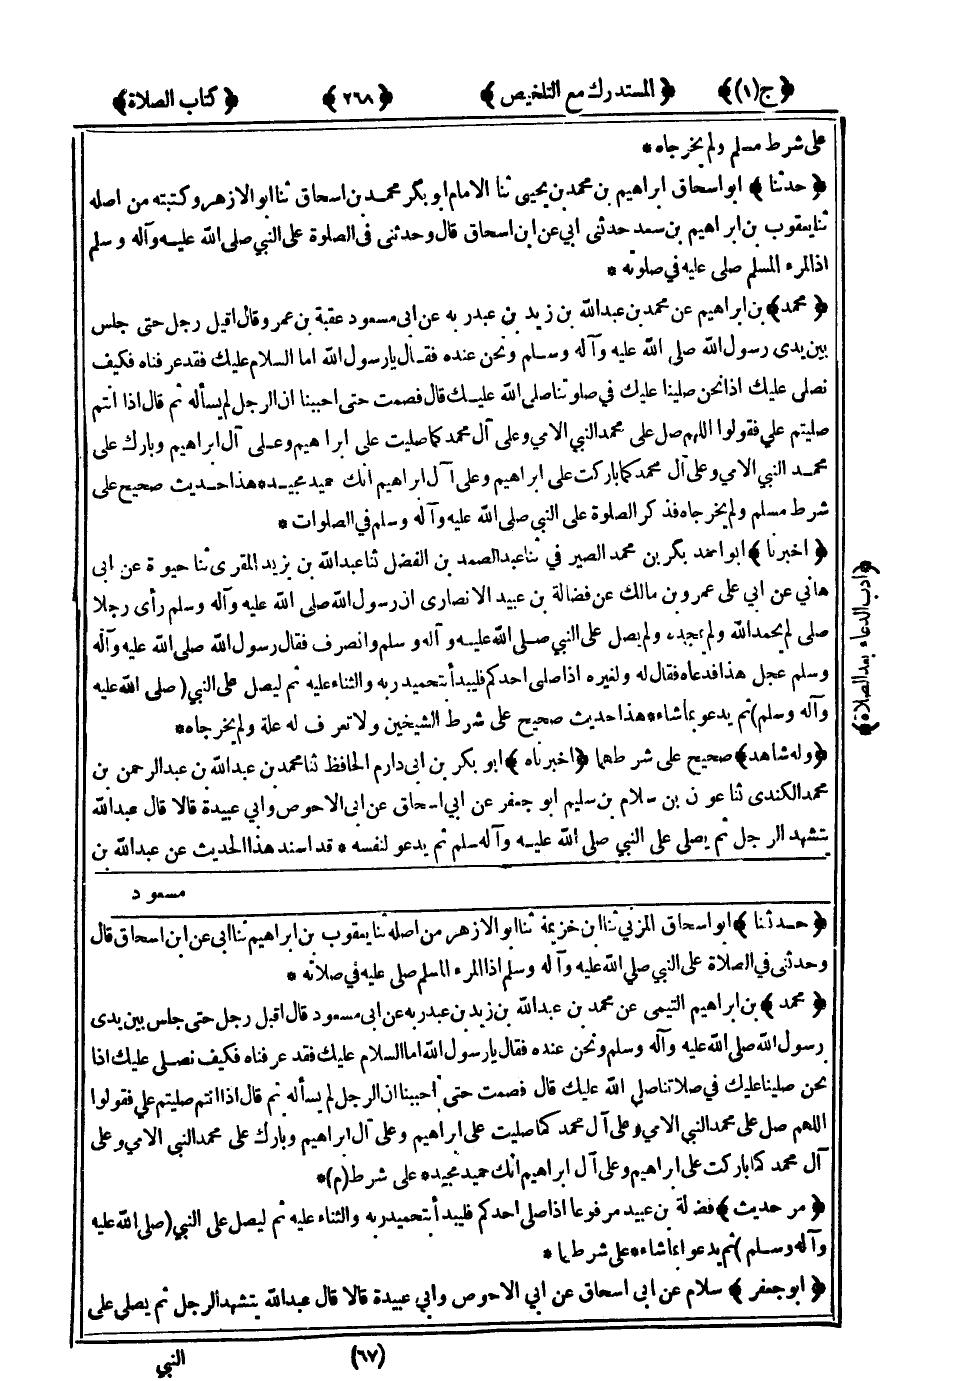 ﴿ ج(١) ﴾ ﴿ المستدرك مع التلخيص ﴾ ﴿ ٢٦٨ ﴾ ﴿ كتاب الصلاة ﴾
على شرط مسلم ولم يخرجاه *
﴿ حدثنا ﴾ ابو اسحاق ابراهيم بن محمد بن يحيى ثنا الامام ابو بكر محمد بن اسحاق ثنا ابو الازهر وكتبته من اصله
ثنا يعقوب بن ابراهيم بن سعد حدثنى ابي عن ابن اسحاق قال وحدثنى فى الصلوة على النبي صلى الله عليه وآله وسلم
اذا المرء المسلم صلى عليه في صلوته *
﴿ محمد ﴾ بن ابراهيم عن محمد بن عبدالله بن زيد بن عبدربه عن ابى مسعود عقبة بن عمرو قال اقبل رجل حتى جلس
بين يدى رسول الله صلى الله عليه وآله وسلم ونحن عنده فقال يا رسول الله اما السلام عليك فقد عرفناه فكيف
نصلى عليك اذا نحن صلينا عليك في صلوتنا صلى الله عليك قال فصمت حتى احببنا ان الرجل لم يسأله ثم قال اذا انتم
صليتم علي فقولوا اللهم صل على محمد النبي الامي وعلى آل محمد كما صليت على ابراهيم وعلى آل ابراهيم وبارك على
محمد النبي الامي وعلى آل محمد كما باركت على ابراهيم وعلى آل ابراهيم انك حميد مجيد * هذا حديث صحيح على
شرط مسلم ولم يخرجاه فذكر الصلوة على النبي صلى الله عليه وآله وسلم في الصلوات *
﴿ اخبرنا ﴾ ابو احمد بكر بن محمد الصيرفي ثنا عبد الصمد بن الفضل ثنا عبدالله بن يزيد المقرى ثنا حيوة عن ابى
هاني عن ابي على عمرو بن مالك عن فضالة بن عبيد الانصارى ان رسول الله صلى الله عليه وآله وسلم رأى رجلا
صلى لم يحمد الله ولم يمجده ولم يصل على النبي صلى الله عليه وآله وسلم وانصرف فقال رسول الله صلى الله عليه وآله
وسلم عجل هذا فدعاه فقال له ولغيره اذا صلى احدكم فليبدأ بتحميد ربه والثناء عليه ثم ليصل على النبي (صلى الله عليه
وآله وسلم) ثم يدعو بما شاء * هذا حديث صحيح على شرط الشيخين ولا تعرف له علة ولم يخرجاه *
﴿ وله شاهد ﴾ صحيح على شرطهما ﴿ اخبرناه ﴾ ابو بكر بن ابى دارم الحافظ ثنا محمد بن عبدالله بن عبد الرحمن بن
محمد الكندى ثنا عون بن سلام بن سليم ابو جعفر عن ابي اسحاق عن ابى الاحوص وابي عبيدة قالا قال عبدالله
يتشهد الرجل ثم يصلى على النبي صلى الله عليه وآله سلم ثم يدعو لنفسه * قد اسند هذا الحديث عن عبدالله بن
مسعود
﴿ حدثنا ﴾ ابو اسحاق المزني ثنا ابن خزيمة ثنا ابو الازهر من اصله ثنا يعقوب بن ابراهيم ثنا ابى عن ابن اسحاق قال
وحدثنى في الصلاة على النبي صلى الله عليه وآله وسلم اذا المرء المسلم صلى عليه في صلاته *
﴿ محمد ﴾ بن ابراهيم التيمى عن محمد بن عبدالله بن زيد بن عبدربه عن ابى مسعود قال اقبل رجل حتى جلس بين يدى
رسول الله صلى الله عليه وآله وسلم ونحن عنده فقال يا رسول الله اما السلام عليك فقد عرفناه فكيف نصلى عليك اذا
نحن صلينا عليك في صلاتنا صلى الله عليك قال فصمت حتى احببنا ان الرجل لم يسأله ثم قال اذا انتم صليتم علي فقولوا
اللهم صل على محمد النبي الامي وعلى آل محمد كما صليت على ابراهيم وعلى آل ابراهيم وبارك على محمد النبي الامي وعلى
آل محمد كما باركت على ابراهيم وعلى آل ابراهيم انك حميد مجيد * على شرط (م) *
﴿ مر حديث ﴾ فضالة بن عبيد مرفوعا اذا صلى احدكم فليبدأ بتحميد ربه والثناء عليه ثم ليصل على النبي (صلى الله عليه
وآله وسلم) ثم يدعو بما شاء * على شرطهما *
﴿ ابو جعفر ﴾ سلام عن ابى اسحاق عن ابي الاحوص وابي عبيدة قالا قال عبدالله يتشهد الرجل ثم يصلى على
﴿ ادب الدعاء بعد الصلاة ﴾
(٦٧) النبي